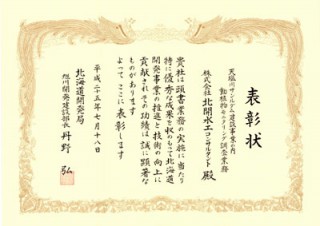 表彰状
天塩川サンルダム建設事業の内
動植物モニタリング調査業務
株式会社 北開水工コンサルタント 殿
貴社は頭書業務の実施に当たり
特に優秀な成果を収めもって北海道
開発事業の推進と技術の向上に
貢献されその功績は誠に顕著な
ものがあります
よってここに表彰します
平成二十五年七月十八日
北海道開発局
旭川開発建設部長 丹野 弘